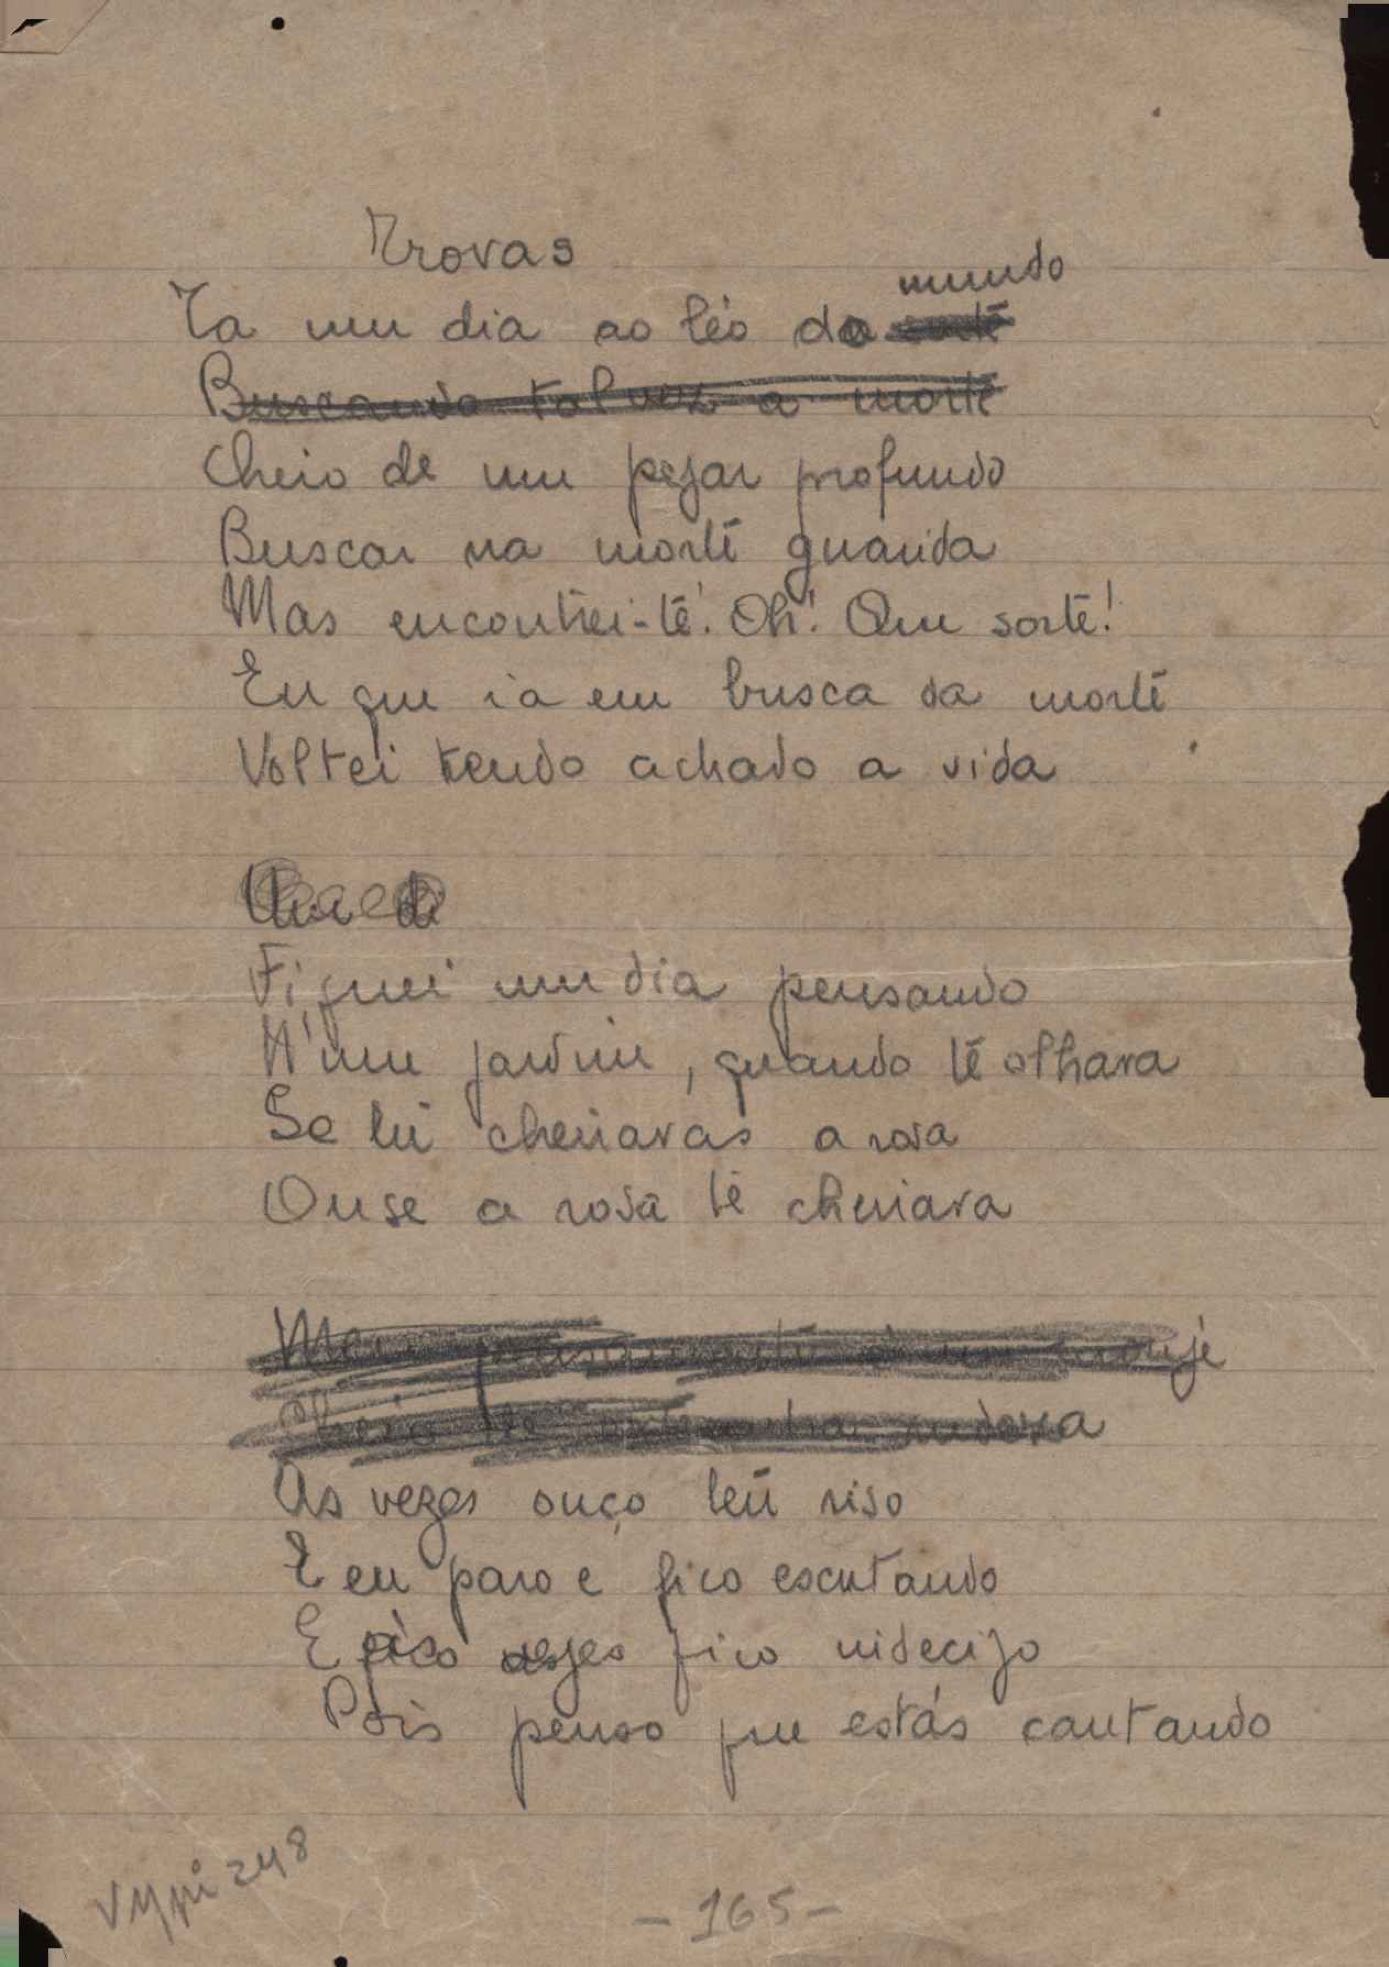 Trovas
mundo
Ia um dia ao léo do sorte
Buscando talvez a morte
Cheio de um pezar profundo
Buscar na morte guarida
Mas encontrei-te! Oh! Que sorte!
Eu que ia em busca da morte
Voltei tendo achado a vida
Fiquei um dia pensando
N'um jardim, quando te olhara
Se tu cheiravas a rosa
Ou se a rosa te cheirava
Meu
Cheio de
As vezes ouço teu riso
E eu paro e fico escutando
E fico indecizo
Pois penso que estás cantando
VMpi 248
- 165 -